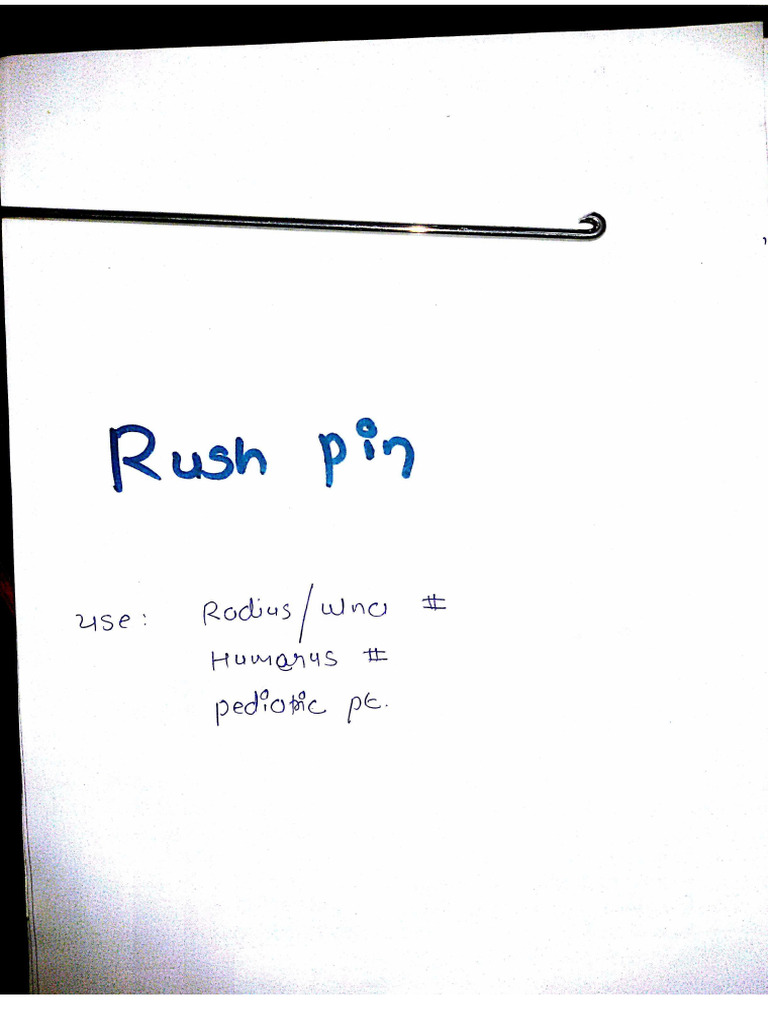 Rush pin
use: Radius/ulna #
Humarus #
pediatric pt.